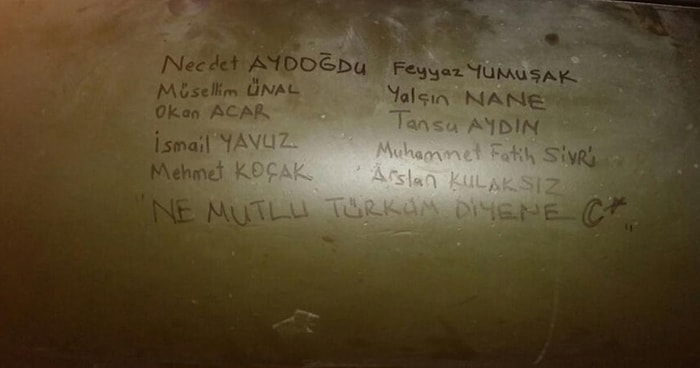 Necdet AYDOĞDU Feyyaz YUMUŞAK
Müsellim ÜNAL Yalçın NANE
Okan ACAR Tansu AYDIN
İsmail YAVUZ Muhammet Fatih SİVRİ
Mehmet KOÇAK Arslan KULAKSIZ
"NE MUTLU TÜRKÜM DİYENE C*"